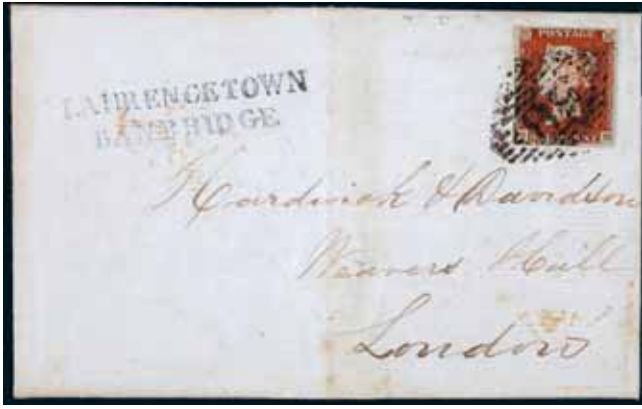 POSTAGE
LAURENCETOWN
BANBRIDGE
Hardwick & Davidson
Weavers Hall
London